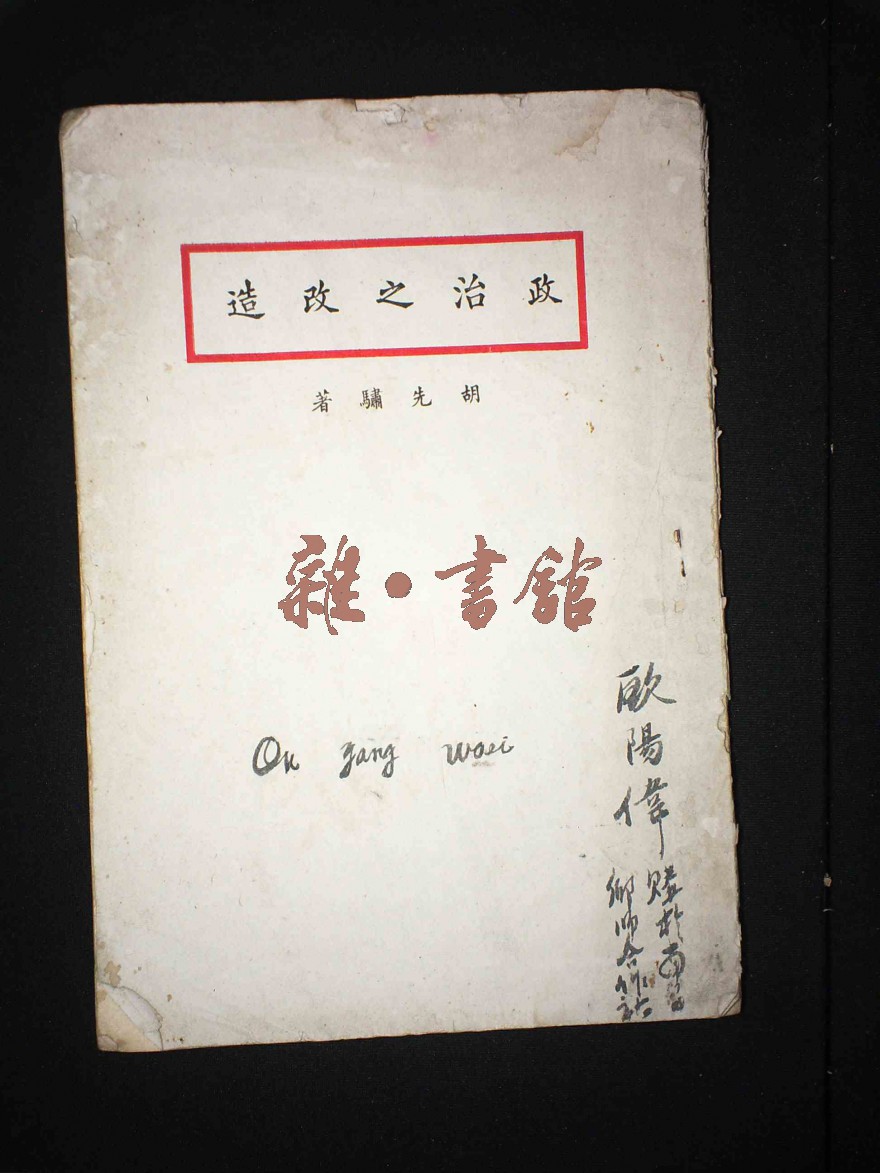 政治之改造
胡先驌著
雜·書館
Ou yang waei
歐陽偉
購於南昌
鄉師合作社